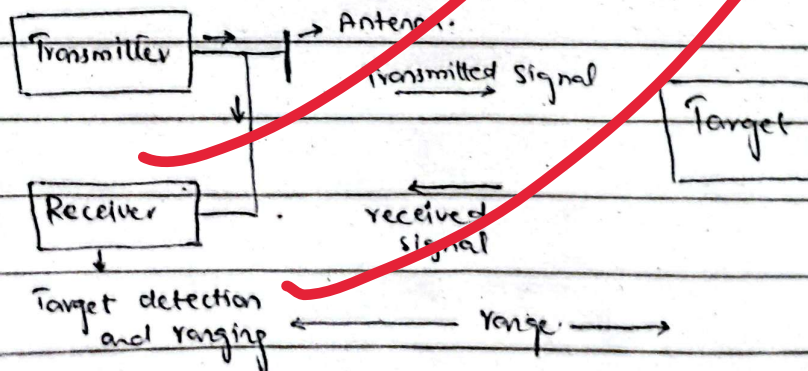 Antenna.
Transmitter
Transmitted Signal
Target
Receiver
received
signal
Target detection
and ranging
range.